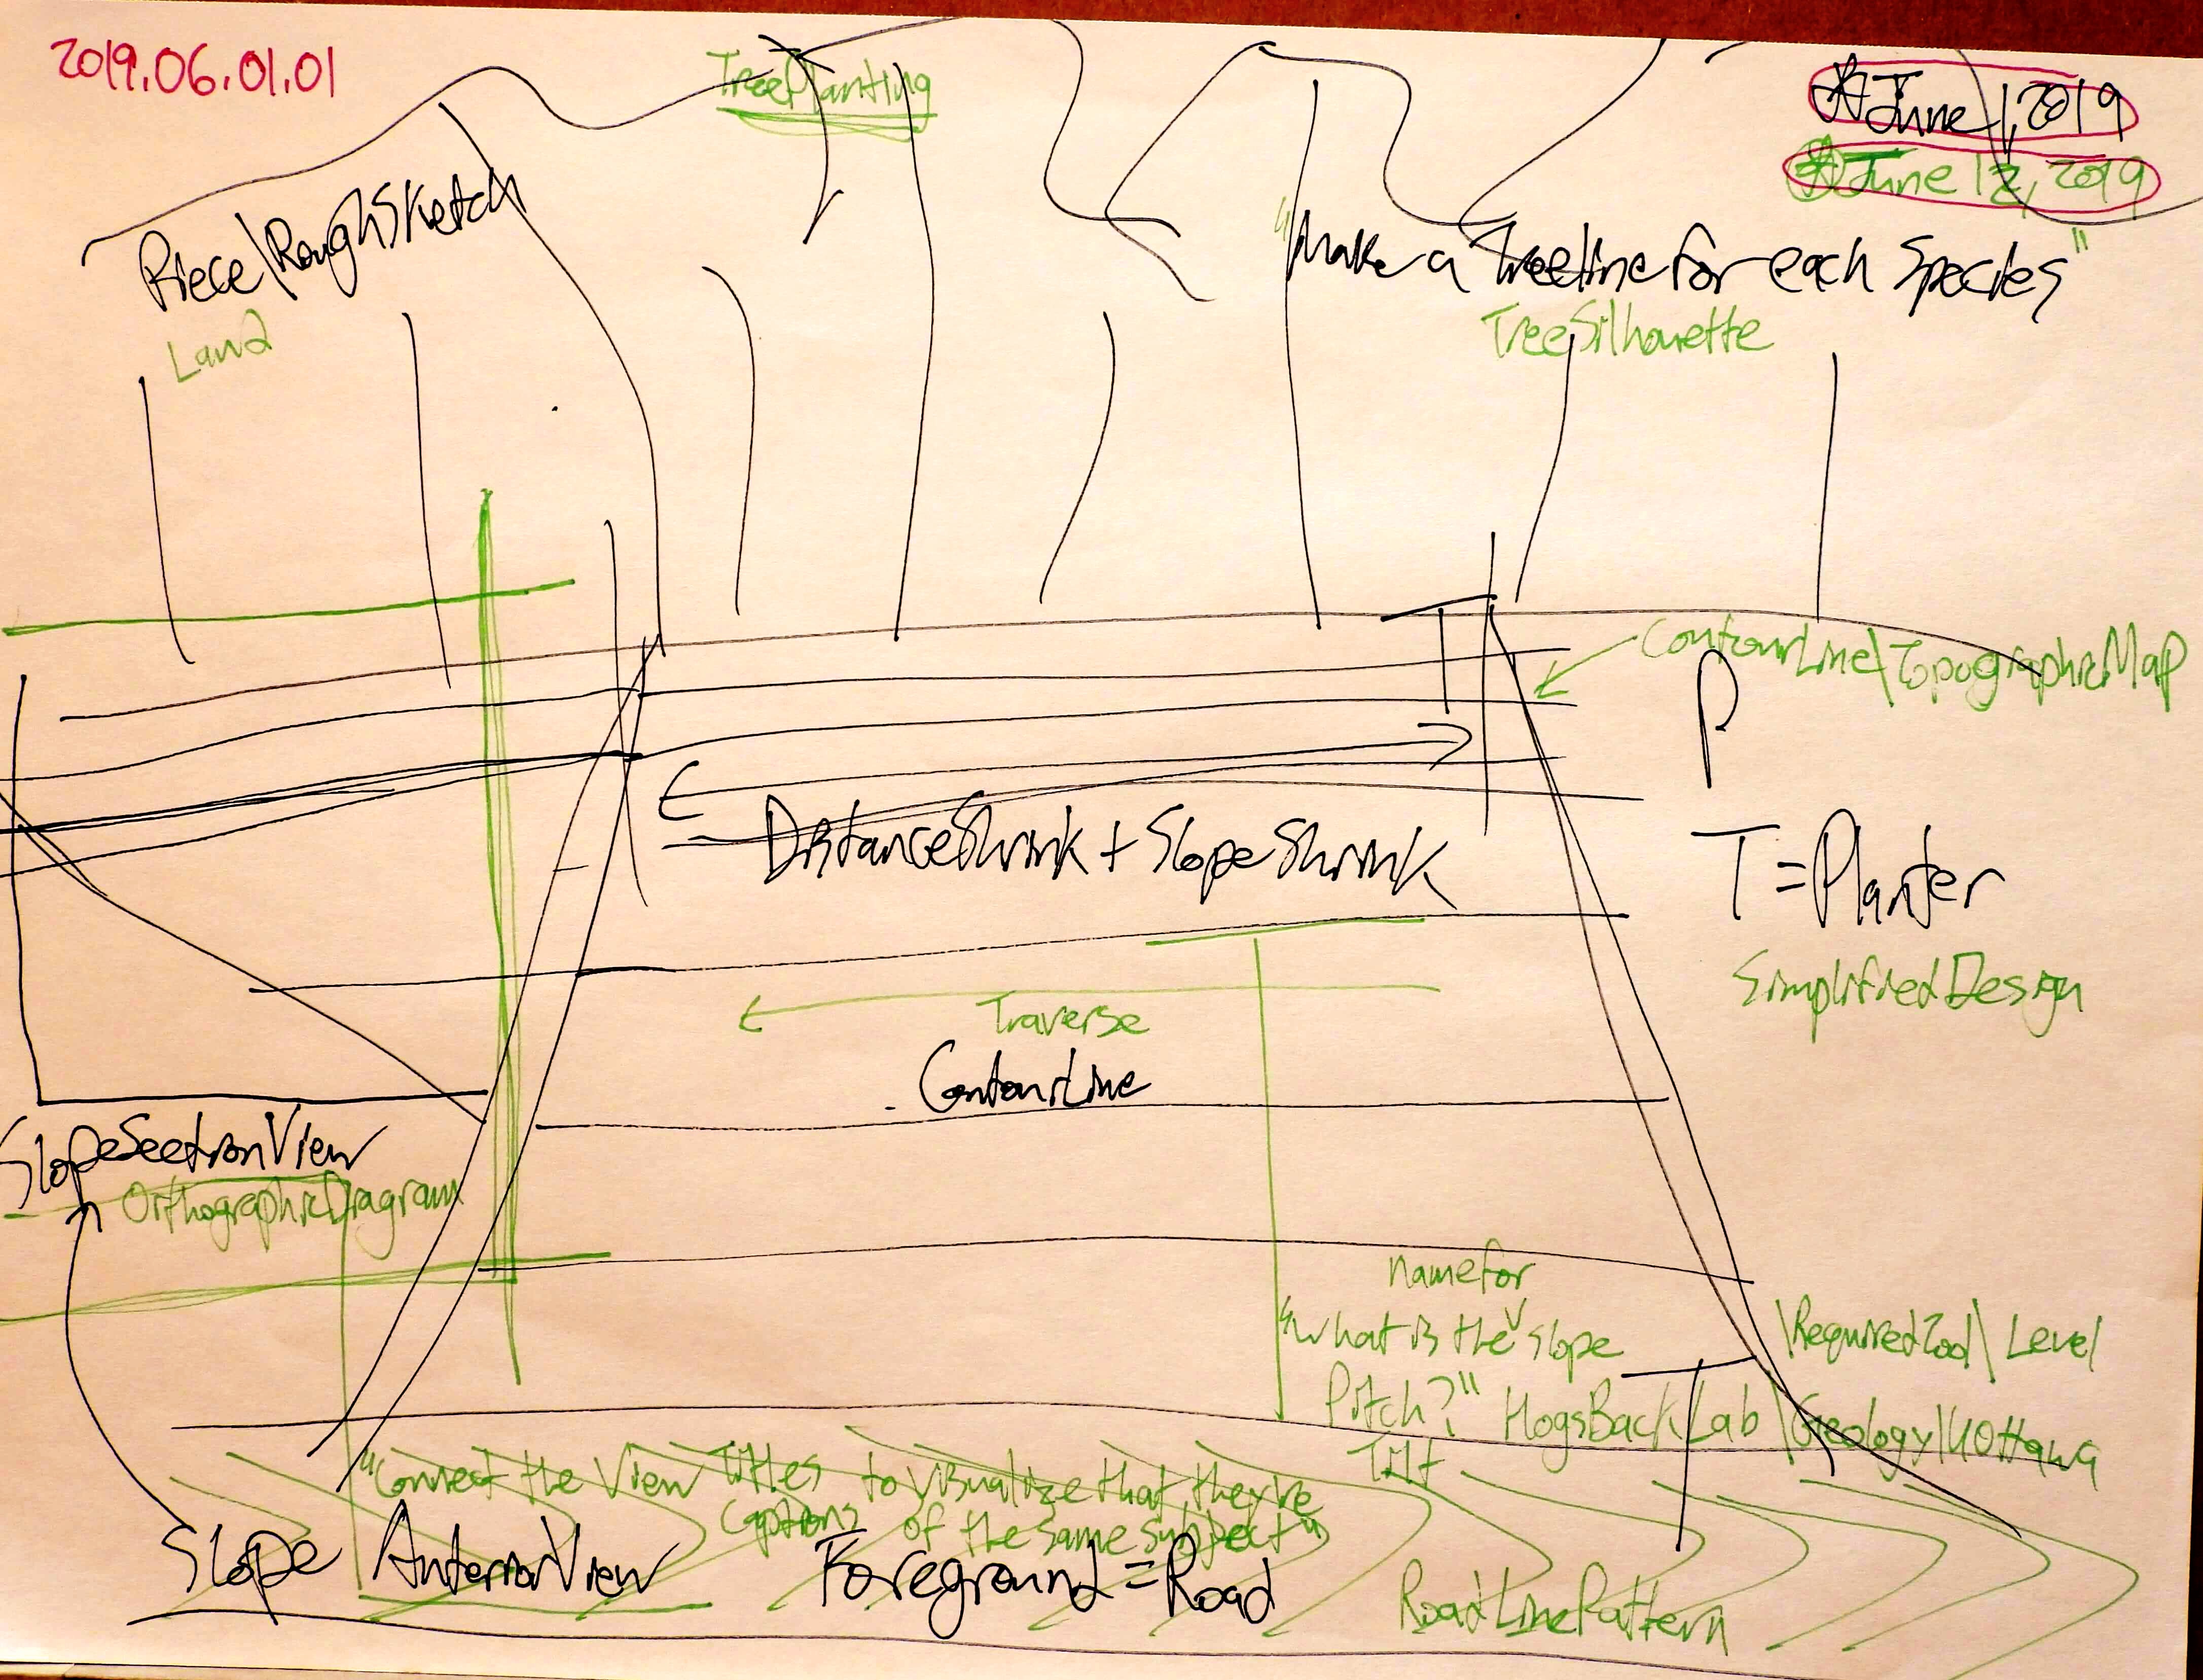 2019.06.01.01
TreePlanting
June 1, 2019
June 12, 2019
Piece\RoughSketch
Land
"Make a treeline for each species"
TreeSilhouette
ContourLine\TopographicMap
P
DistanceShrink + SlopeShrink
T=Planter
SimplifiedDesign
Traverse
ContourLine
SlopeSectionView
OrthographicDiagram
name for
"what is the slope
Pitch?"
Tilt
\RequiredTool\Level
HogsBackLab\Geology\UOttawa
"Connect the View Titles to visualize that they're
Captions of the same subject"
Slope AnteriorView
Foreground = Road
RoadLinePattern